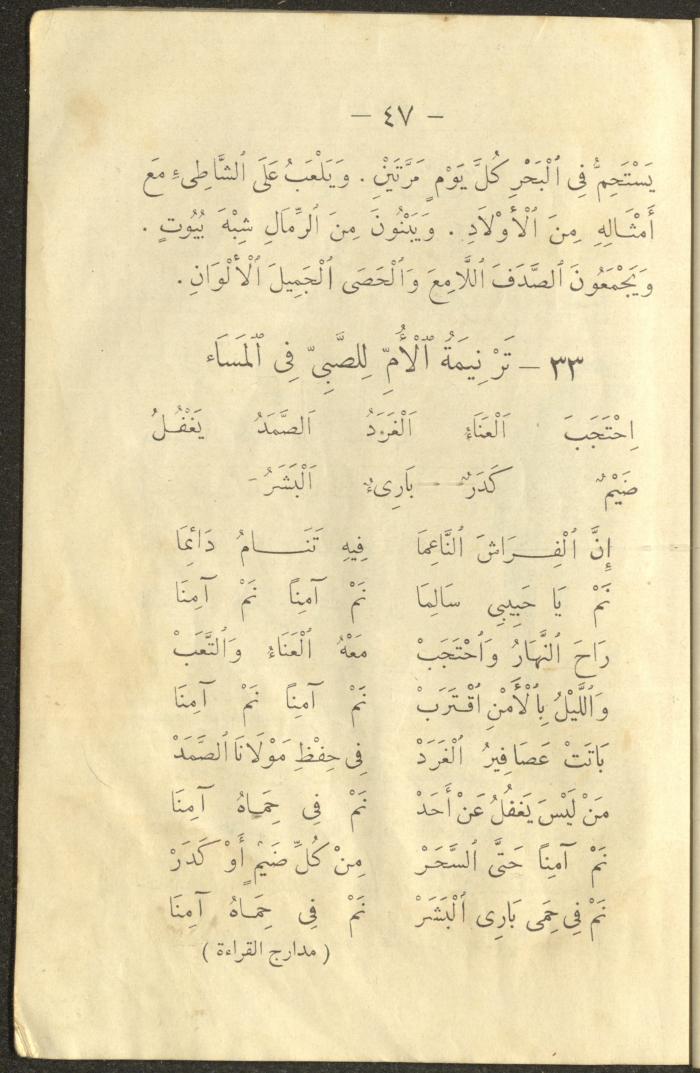 — ٤٧ —
يَسْتَحِمُّ فِى ٱلْبَحْرِ كُلَّ يَوْمٍ مَرَّتَيْنِ . وَيَلْعَبُ عَلَى ٱلشَّاطِىءِ مَعَ
أَمْثَالِهِ مِنَ ٱلْأَوْلَادِ . وَيَبْنُونَ مِنَ ٱلرِّمَالِ شِبْهَ بُيُوتٍ .
وَيَجْمَعُونَ ٱلصَّدَفَ ٱللَّامِعَ وَٱلْحَصَى ٱلْجَمِيلَ ٱلْأَلْوَانِ .
٣٣ — تَرْنِيمَةُ ٱلْأُمِّ لِلصَّبِىِّ فِى ٱلْمَسَاء
اِحْتَجَبَ اَلْعَنَاءُ اَلْغَرَدُ اَلصَّمَدُ يَغْفُلُ
ضَيْمٌ كَدَرٌ بَارِىءٌ اَلْبَشَرُ -
إِنَّ ٱلْفِرَاشَ ٱلنَّاعِمَا فِيهِ تَنَامُ دَائِمَا
نَمْ يَا حَبِيبِى سَالِمَا نَمْ آمِنًا نَمْ آمِنَا
رَاحَ ٱلنَّهَارُ وَٱحْتَجَبْ مَعْهُ ٱلْعَنَاءُ وَٱلتَّعَبْ
وَٱللَّيْلُ بِٱلْأَمْنِ ٱقْتَرَبْ نَمْ آمِنًا نَمْ آمِنَا
بَاتَتْ عَصَافِيرُ ٱلْغَرَدْ فِى حِفْظِ مَوْلَانَا ٱلصَّمَدْ
مَنْ لَيْسَ يَغفُلُ عَنْ أَحَدْ نَمْ فِى حِمَاهُ آمِنَا
نَمْ آمِنًا حَتَّى ٱلسَّحَرْ مِنْ كُلِّ ضَيْمٍ أَوْ كَدَرْ
نَمْ فِى حِمَى بَارِى ٱلْبَشَرْ نَمْ فِى حِمَاهُ آمِنَا
( مدارج القراءة )